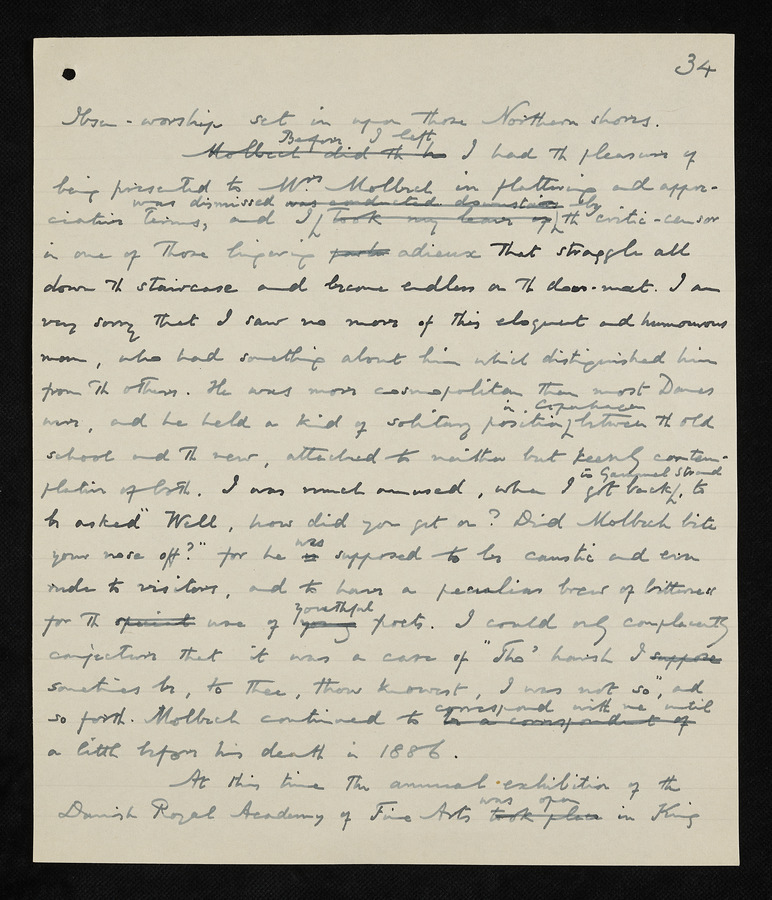 34
Ibsen-worship set in upon those Northern shores.
Before I left
Molbech did th h I had the pleasure of
being presented to Mrs Molbech in flattering and appre-
was dismissed was conducted downstairs by
ciative terms, and I took my leave of the critic-censor
in one of those lingering adieux that straggle all
down the staircase and become endless on the door-mat. I am
very sorry that I saw no more of this eloquent and humourous
man, who had something about him which distinguished him
from the others. He was more cosmopolitan than most Danes
in Copenhagen
were, and he held a kind of solitary position between the old
school and the new, attached to neither but keenly contem-
to Gammel Strand
plative of both. I was much amused, when I got back, to
be asked "Well, how did you get on? Did Molbech bite
was
your nose off?" for he is supposed to be caustic and even
rude to visitors, and to have a peculiar brew of bitterness
youthful
for the special use of young poets. I could only complacently
conjecture that it was a case of "Tho' harsh I suppose
sometimes be, to thee, thou knowest, I was not so", and
correspond with me until
so forth. Molbech continued to be a correspondent of
a little before his death in 1886.
At this time the annual exhibition of the
was open
Danish Royal Academy of Fine Arts took place in King